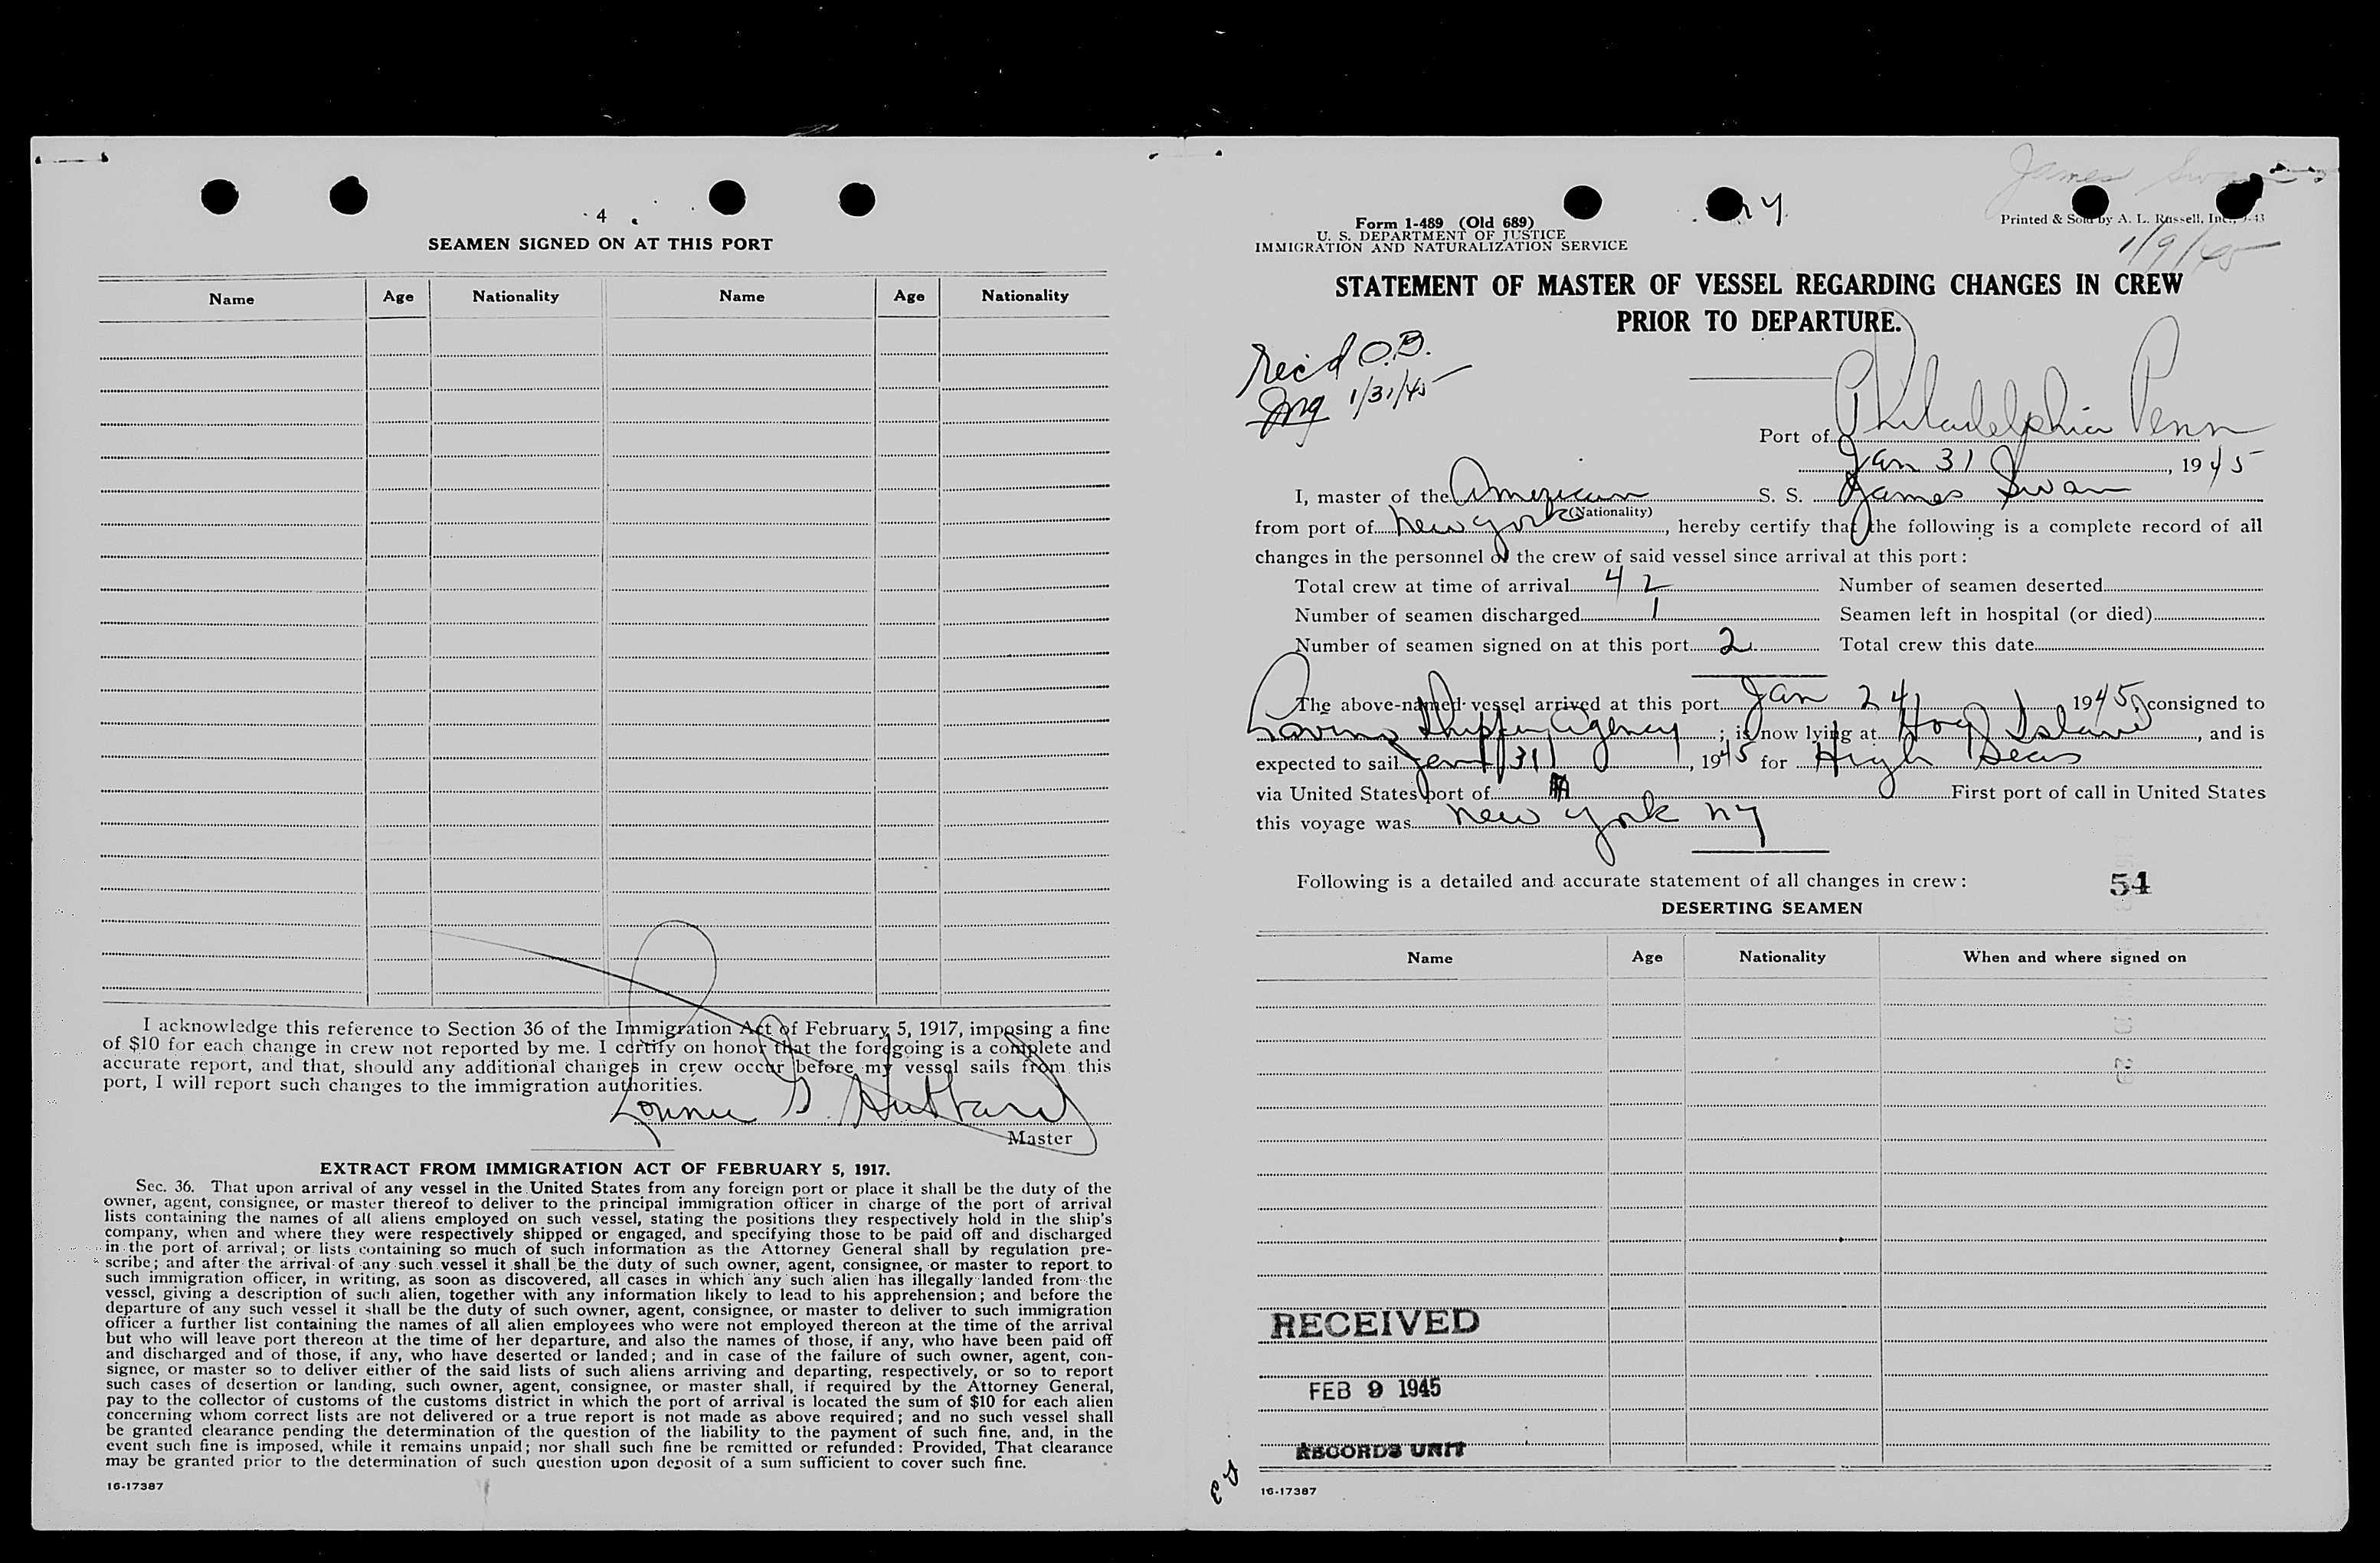 4
SEAMEN SIGNED ON AT THIS PORT
Name Age Nationality Name Age Nationality
I acknowledge this reference to Section 36 of the Immigration Act of February 5, 1917, imposing a fine
of $10 for each change in crew not reported by me. I certify on honor that the foregoing is a complete and
accurate report, and that, should any additional changes in crew occur before my vessel sails from this
port, I will report such changes to the immigration authorities.
Lonnie G. Hubbard
Master
EXTRACT FROM IMMIGRATION ACT OF FEBRUARY 5, 1917.
Sec. 36. That upon arrival of any vessel in the United States from any foreign port or place it shall be the duty of the
owner, agent, consignee, or master thereof to deliver to the principal immigration officer in charge of the port of arrival
lists containing the names of all aliens employed on such vessel, stating the positions they respectively hold in the ship's
company, when and where they were respectively shipped or engaged, and specifying those to be paid off and discharged
in the port of arrival; or lists containing so much of such information as the Attorney General shall by regulation pre-
scribe; and after the arrival of any such vessel it shall be the duty of such owner, agent, consignee, or master to report to
such immigration officer, in writing, as soon as discovered, all cases in which any such alien has illegally landed from the
vessel, giving a description of such alien, together with any information likely to lead to his apprehension; and before the
departure of any such vessel it shall be the duty of such owner, agent, consignee, or master to deliver to such immigration
officer a further list containing the names of all alien employees who were not employed thereon at the time of the arrival
but who will leave port thereon at the time of her departure, and also the names of those, if any, who have been paid off
and discharged and of those, if any, who have deserted or landed; and in case of the failure of such owner, agent, con-
signee, or master so to deliver either of the said lists of such aliens arriving and departing, respectively, or so to report
such cases of desertion or landing, such owner, agent, consignee, or master shall, if required by the Attorney General,
pay to the collector of customs of the customs district in which the port of arrival is located the sum of $10 for each alien
concerning whom correct lists are not delivered or a true report is not made as above required; and no such vessel shall
be granted clearance pending the determination of the question of the liability to the payment of such fine, and, in the
event such fine is imposed, while it remains unpaid; nor shall such fine be remitted or refunded: Provided, That clearance
may be granted prior to the determination of such question upon deposit of a sum sufficient to cover such fine.
16-17387
James Swan
Form I-489 (Old 689)
U. S. DEPARTMENT OF JUSTICE
IMMIGRATION AND NATURALIZATION SERVICE
Printed & Sold by A. L. Russell, Inc.,
1/9/45
STATEMENT OF MASTER OF VESSEL REGARDING CHANGES IN CREW
PRIOR TO DEPARTURE.
Rec'd O.B.
1/31/45
Port of Philadelphia Penn
Jan 31, 1945
I, master of the American S. S. James Swan
(Nationality)
from port of New York, hereby certify that the following is a complete record of all
changes in the personnel of the crew of said vessel since arrival at this port:
Total crew at time of arrival 42 Number of seamen deserted
Number of seamen discharged 1 Seamen left in hospital (or died)
Number of seamen signed on at this port 2 Total crew this date
The above-named vessel arrived at this port Jan 24 1945, consigned to
Shipping Agency; is now lying at Hog Island, and is
expected to sail Jan 31, 1945 for High Seas
via United States port of First port of call in United States
this voyage was New York NY
Following is a detailed and accurate statement of all changes in crew:
54
DESERTING SEAMEN
Name Age Nationality When and where signed on
RECEIVED
FEB 9 1945
RECORDS UNIT
16-17387